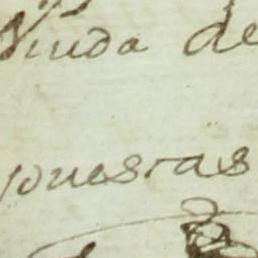 Viuda de
puestas